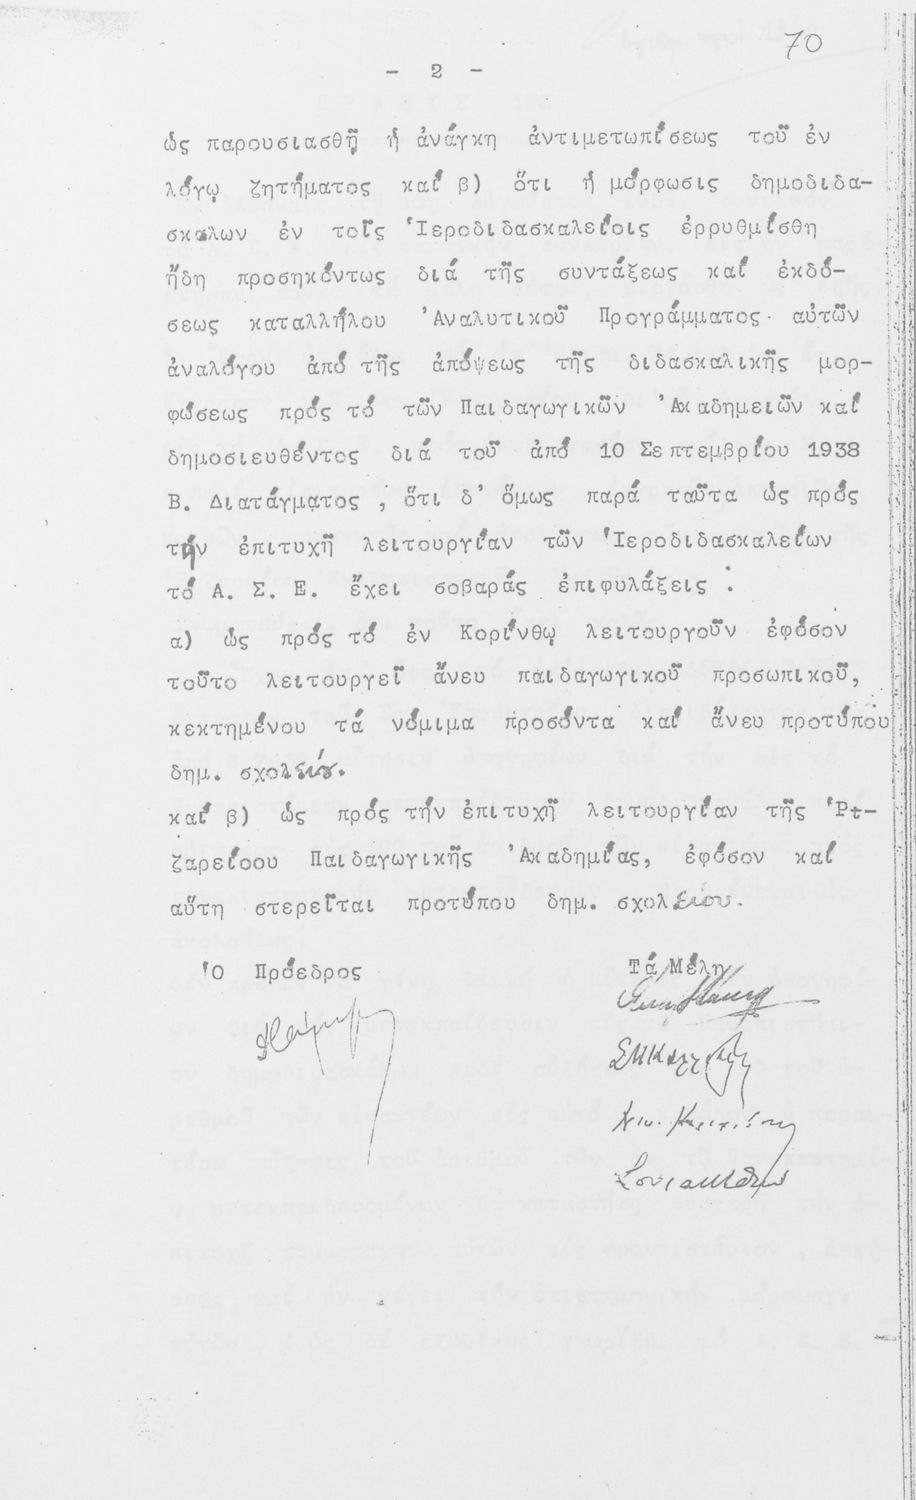 70
- 2 -
ὡς παρουσιασθῇ ἡ ἀνάγκη ἀντιμετωπίσεως τοῦ ἐν
λόγῳ ζητήματος καί β) ὅτι ἡ μόρφωσις δημοδιδα-
σκαλων ἐν τοῖς Ἱεροδιδασκαλείοις ἐρρυθμίσθη
ἤδη προσηκόντως διά τῆς συντάξεως καί ἐκδό-
σεως καταλλήλου Ἀναλυτικοῦ Προγράμματος αὐτῶν
ἀναλόγου ἀπό τῆς ἀπόψεως τῆς διδασκαλικῆς μορ-
φώσεως πρός τό τῶν Παιδαγωγικῶν Ἀκαδημειῶν καί
δημοσιευθέντος διά τοῦ ἀπό 10 Σεπτεμβρίου 1938
Β. Διατάγματος , ὅτι δ' ὅμως παρά ταῦτα ὡς πρός
τήν ἐπιτυχῆ λειτουργίαν τῶν Ἱεροδιδασκαλείων
τό Α. Σ. Ε. ἔχει σοβαράς ἐπιφυλάξεις :
α) ὡς πρός τό ἐν Κορίνθῳ λειτουργοῦν ἐφόσον
τοῦτο λειτουργεῖ ἄνευ παιδαγωγικοῦ προσωπικοῦ,
κεκτημένου τά νόμιμα προσόντα καί ἄνευ προτύπου
δημ. σχολείου.
καί β) ὡς πρός τήν ἐπιτυχῆ λειτουργίαν τῆς Ῥι-
ζαρείοου Παιδαγωγικῆς Ἀκαδημίας, ἐφόσον καί
αὕτη στερεῖται προτύπου δημ. σχολείου.
Ὁ Πρόεδρος
Τά Μέλη